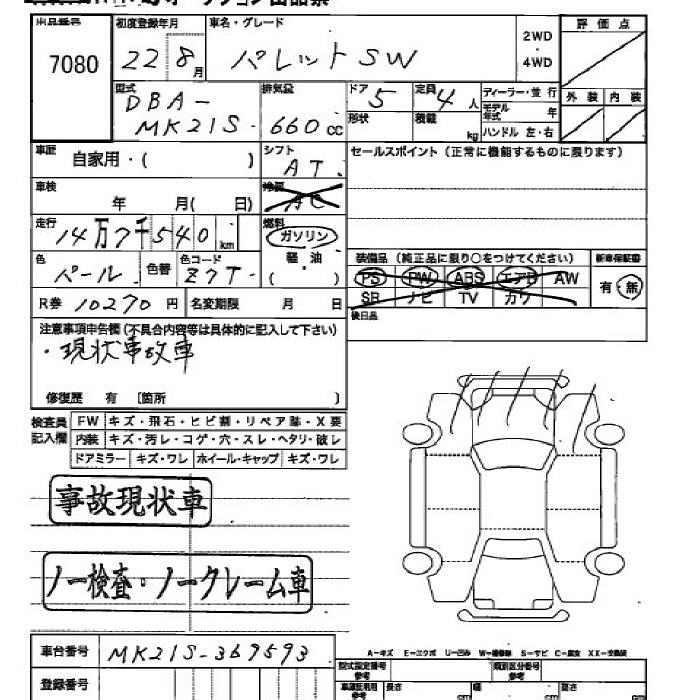 出品番号 初度登録年月 車名・グレード 2WD 評価点
7080 22 8月 パレットSW ・4WD
型式 排気量 ドア 定員 ディーラー・並行 外装 内装
DBA- 5 4人 モデル年式 年
MK21S 660cc 形状 積載 kg ハンドル 左・右
車歴 自家用・( ) シフト セールスポイント(正常に機能するものに限ります)
AT
車検 年 月( 日) 冷房 AC
走行 14万7千540km 燃料 ガソリン
色 色替 色コード 軽油 装備品(純正品に限り○をつけてください) 新車保証書
パール Z7T ( ) PS PW ABS エアB AW 有・無
R券 10270円 名変期限 月 日 SR ナビ TV カワ
注意事項申告欄(不具合内容等は具体的に記入して下さい) 後日品
・現状事故車
修復歴 有 〔箇所 〕
検査員 FW キズ・飛石・ヒビ割・リペア跡・X要
記入欄 内装 キズ・汚レ・コゲ・穴・スレ・ヘタリ・破レ
ドアミラー キズ・ワレ ホイール・キャップ キズ・ワレ
事故現状車
ノー検査・ノークレーム車
A-キズ E-エクボ U-凹み W-補修跡 S-サビ C-腐食 XX-交換済
車台番号 MK21S-369593 型式指定番号 参考 類別区分番号 参考
登録番号 長さ cm 幅 cm 高さ cm